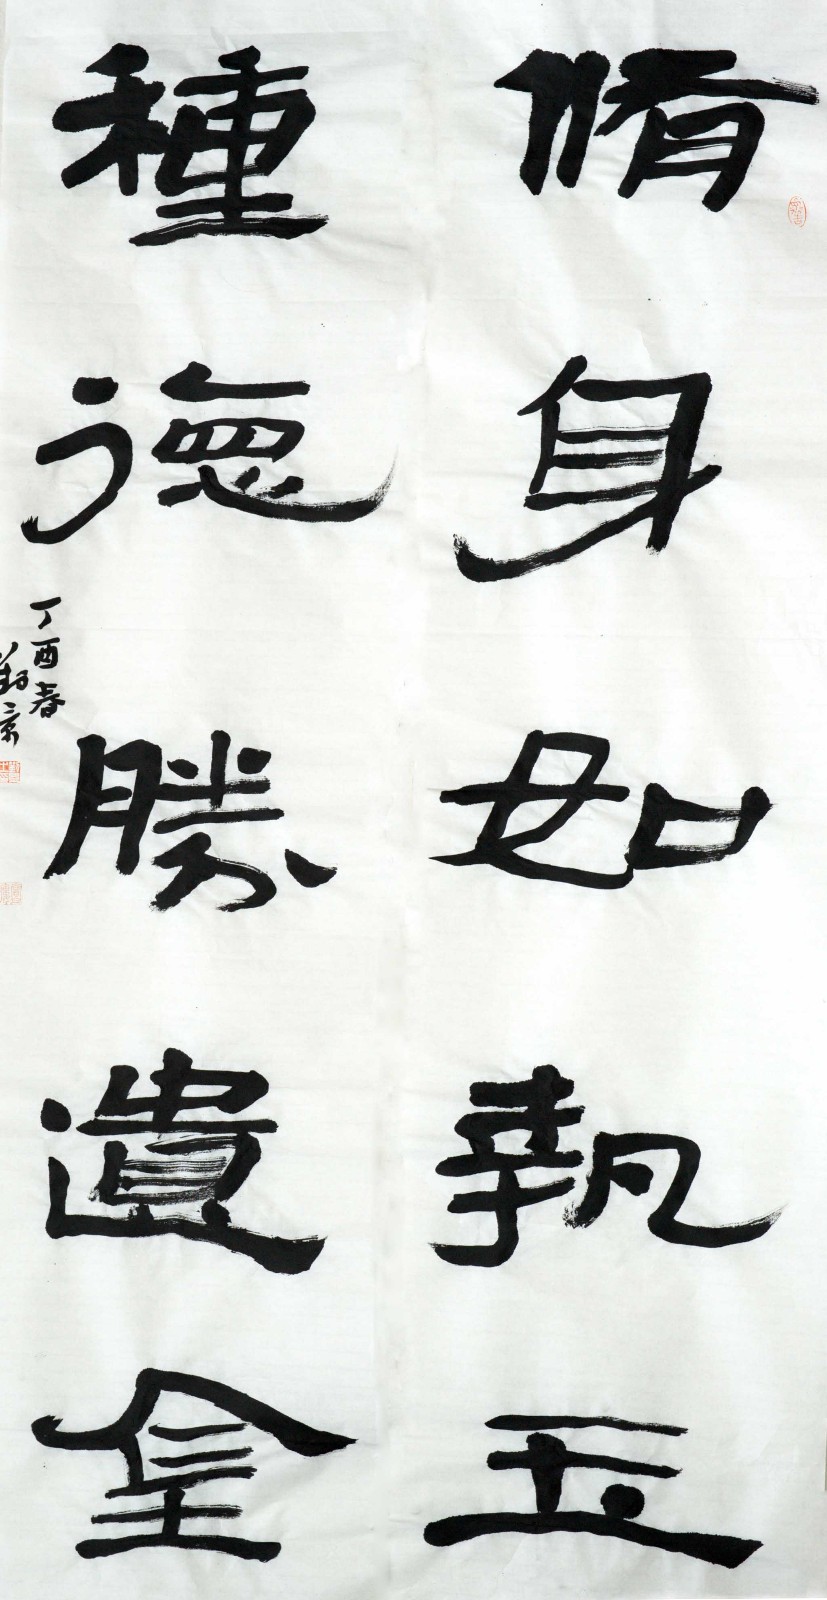 脩身如執玉
種德勝遺金
丁酉春